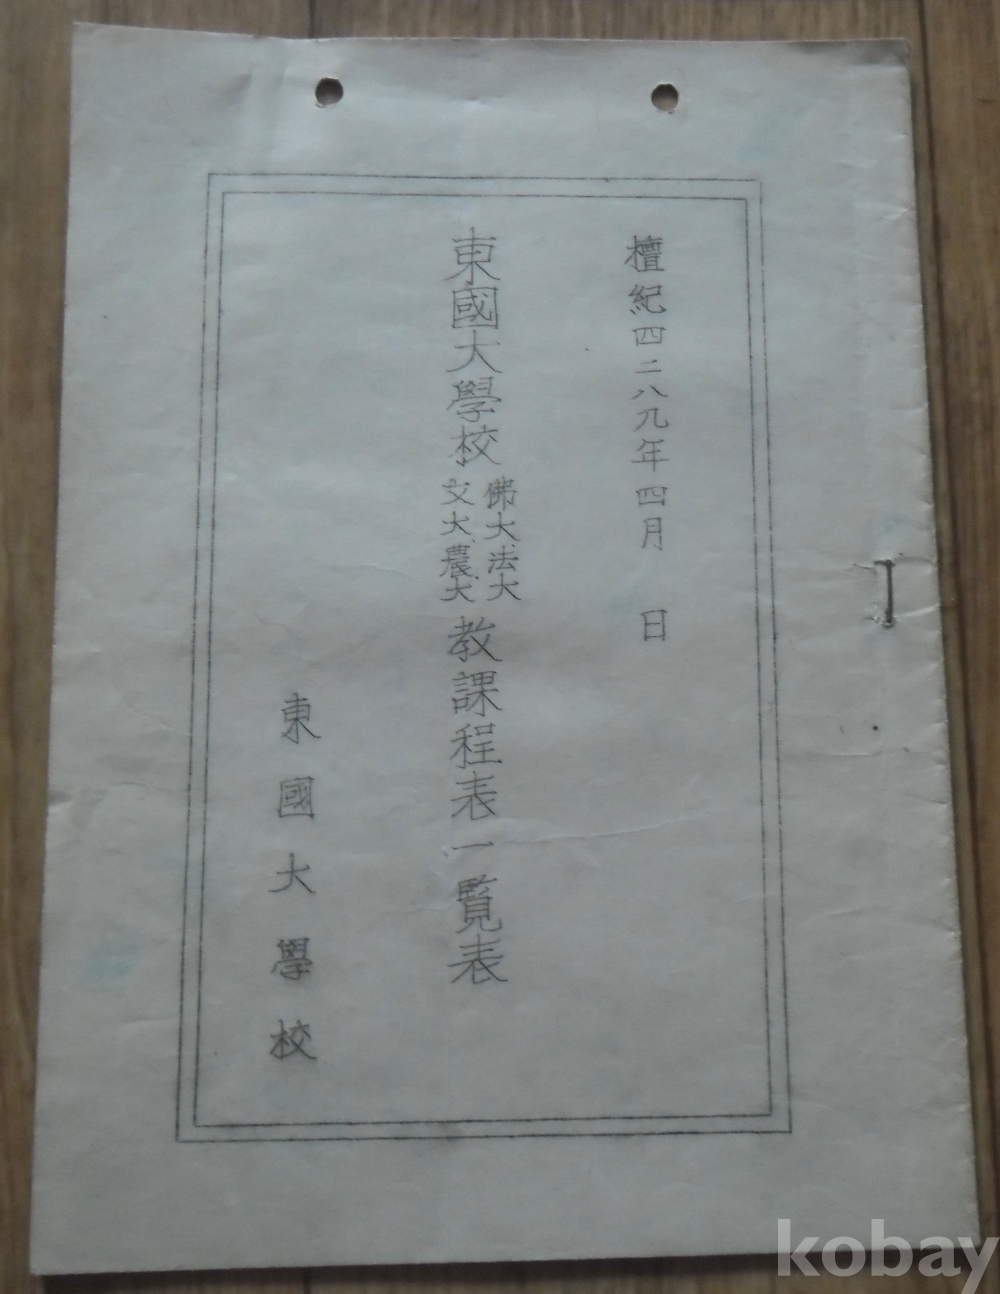 檀紀四二八九年四月　日
東國大學校 佛大、法大 文大、農大 教課程表一覽表
東國大學校
kobay